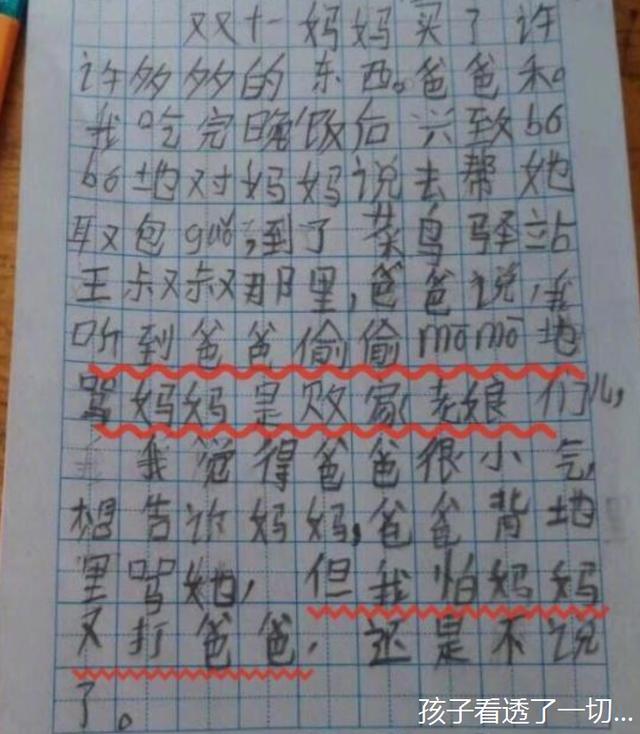 双十一妈妈买了许
许多多的东西。爸爸和
我吃完晚饭后兴致bó
bó地对妈妈说去帮她
取包guǒ,到了菜鸟驿站
王叔叔那里,爸爸说,我
听到爸爸偷偷mōmō地
骂妈妈是败家老娘们儿,
我觉得爸爸很小气,
想告诉妈妈,爸爸背地
里骂她,但我怕妈妈
又打爸爸,还是不说
了。
孩子看透了一切...